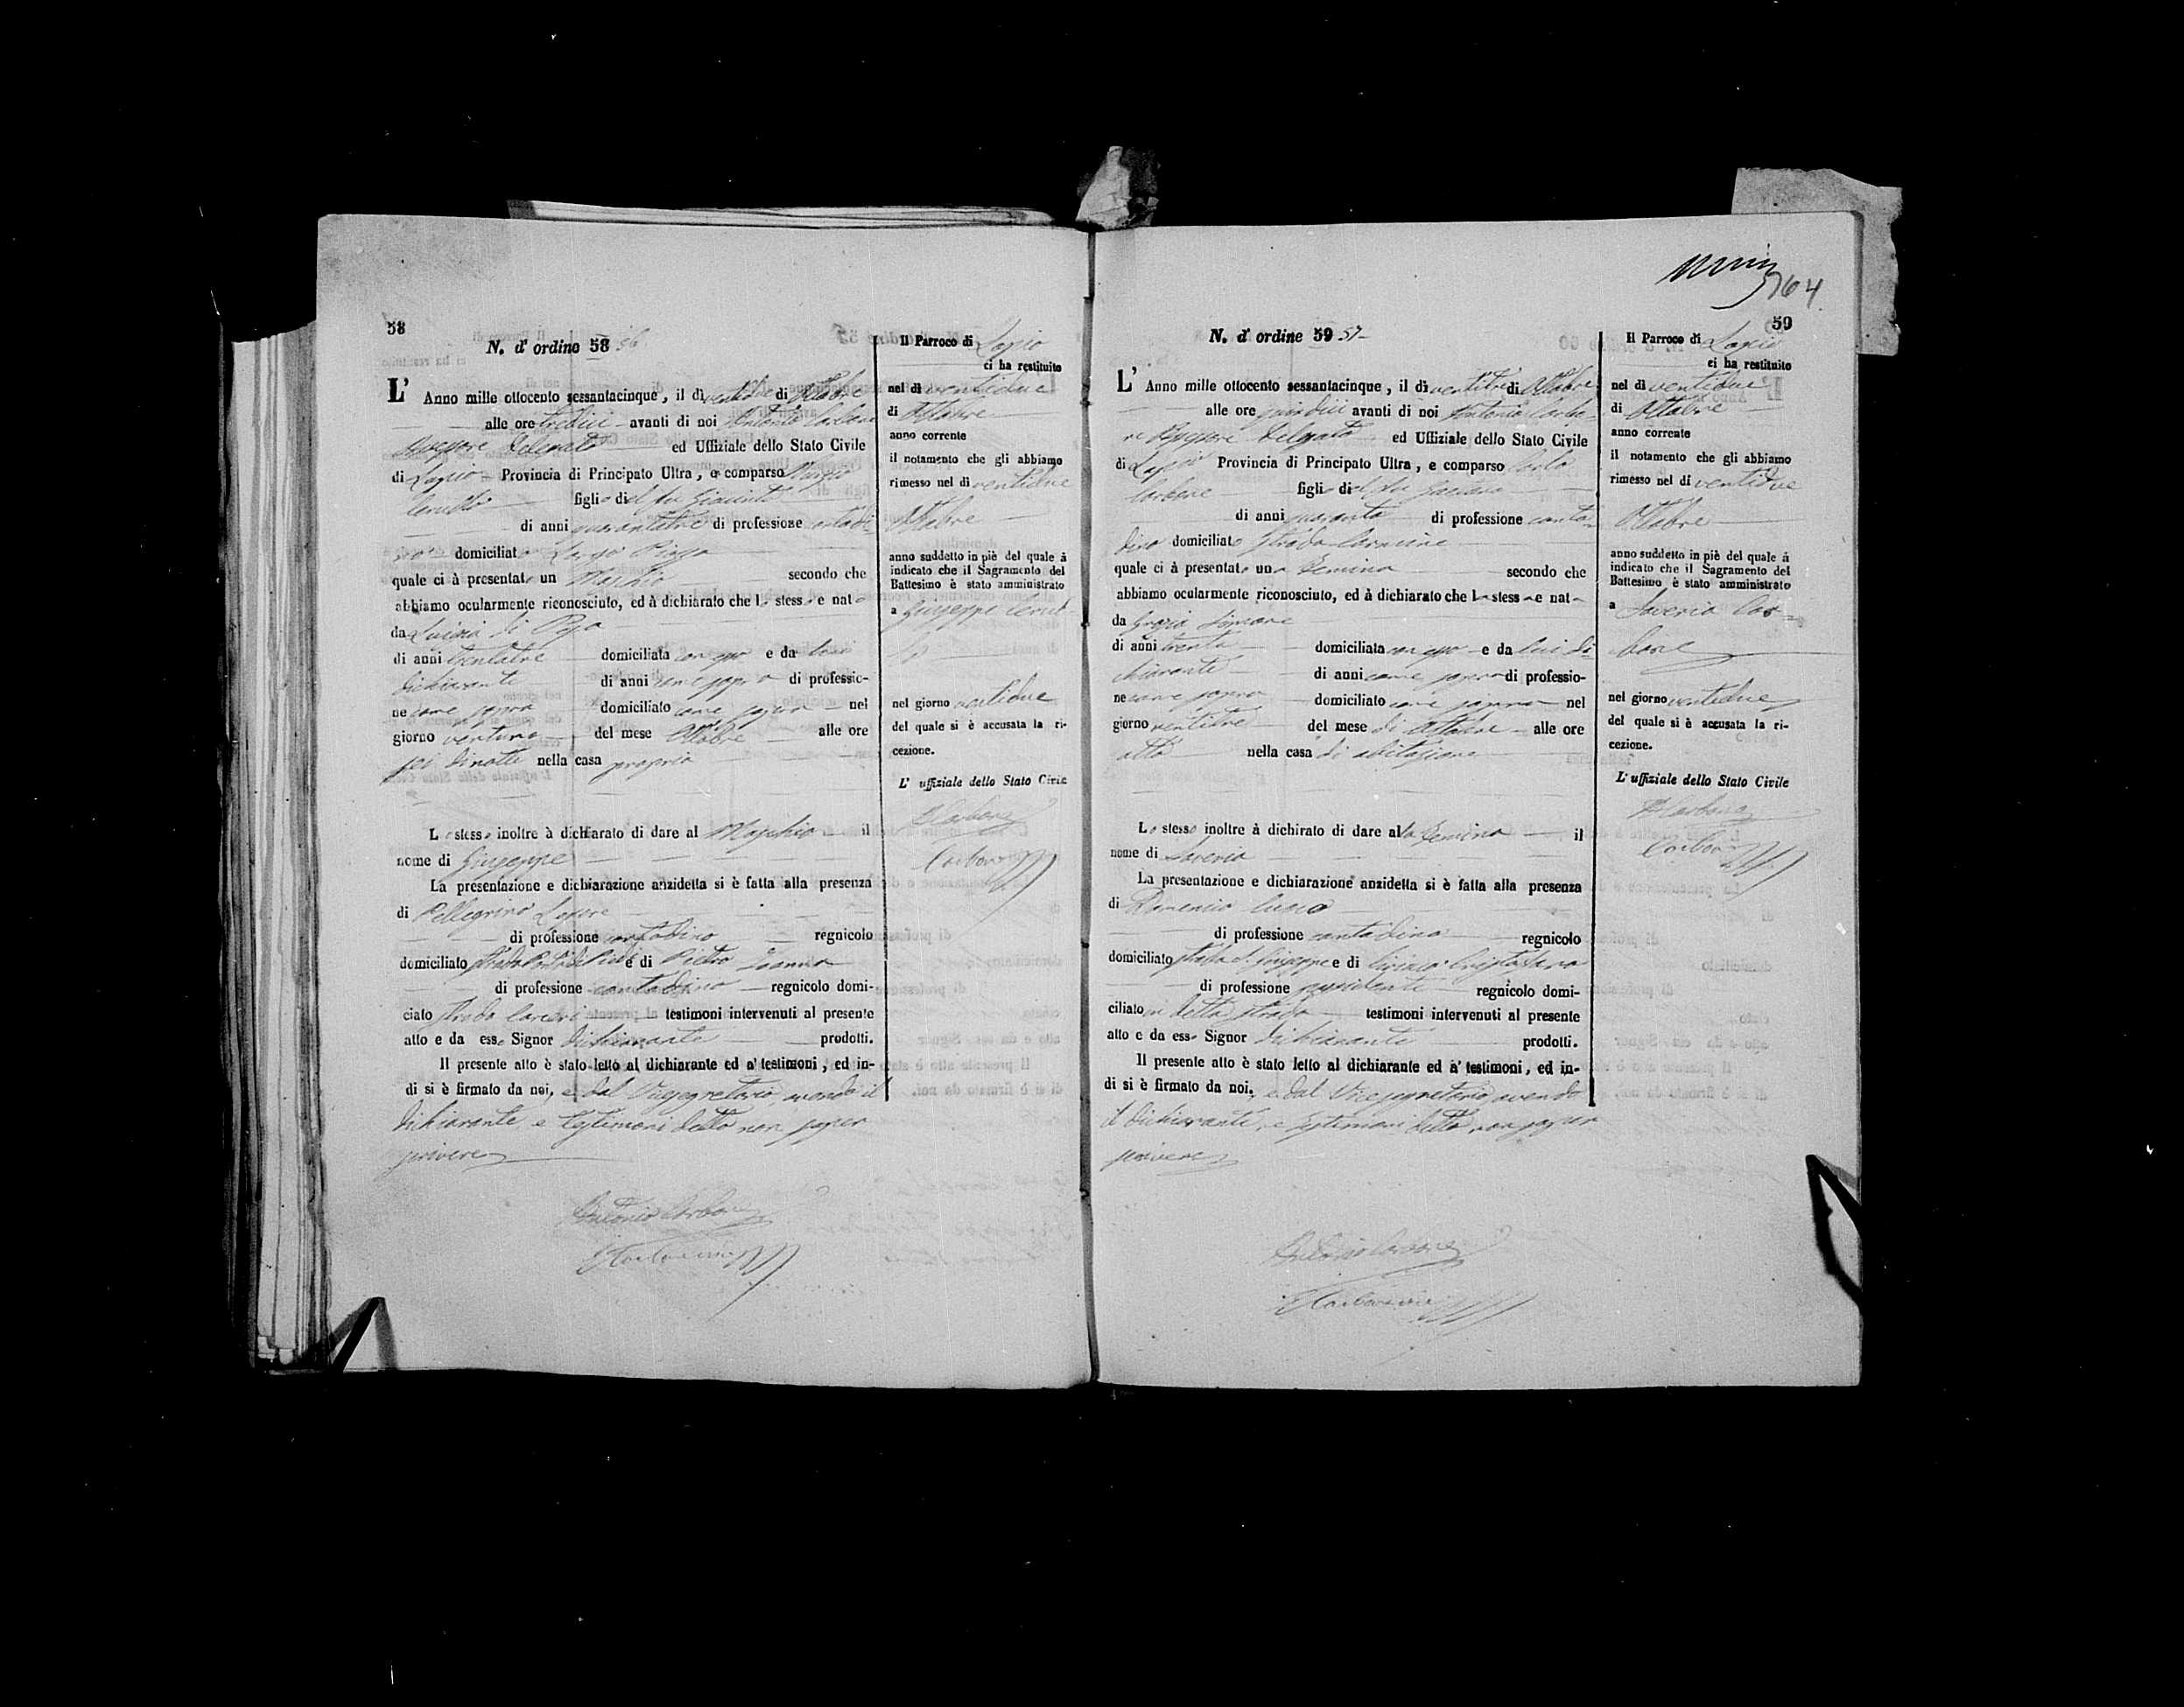 58
N. d' ordine 58 56
L' Anno mille ottocento sessantacinque, il dì ventidue di Ottobre
alle ore tredici avanti di noi Antonio Carbone
Assessore Delegato ed Uffiziale dello Stato Civile
di Lapio Provincia di Principato Ultra, e comparso
figlio di fu Giacinto
di anni quarantatre di professione contadi
no domiciliato Largo Piazza
quale ci à presentato un Maschio secondo che
abbiamo ocularmente riconosciuto, ed à dichiarato che lo stesso e nato
da Luisia di
di anni trentatre domiciliata con esso e da lui
dichiarante di anni come sopra di professio-
ne come sopra domiciliato come sopra nel
giorno ventuno del mese Ottobre alle ore
sei di notte nella casa propria
Lo stesso inoltre à dichiarato di dare al Maschio il
nome di Giuseppe
La presentazione e dichiarazione anzidetta si è fatta alla presenza
di Pellegrino Lepore
di professione contadino regnicolo
domiciliato Strada e di Pietro
di professione contadino regnicolo domi-
ciato strada Carceri testimoni intervenuti al presente
atto e da esso Signor dichiarante prodotti.
Il presente atto è stato letto al dichiarante ed a' testimoni, ed in-
di si è firmato da noi, e dal Vicesegretario, avendo il
dichiarante, e testimoni detto non saper
scrivere
Antonio Carbone
Il Parroco di Lapio
ci ha restituito
nel dì ventidue
di Ottobre
anno corrente
il notamento che gli abbiamo
rimesso nel dì ventidue
Ottobre
anno suddetto in piè del quale à
indicato che il Sagramento del
Battesimo è stato amministrato
a Giuseppe
nel giorno ventidue
del quale si è accusata la ri-
cezione.
L' uffiziale dello Stato Civile
Carbone
64
59
N. d' ordine 59 57
L' Anno mille ottocento sessantacinque, il dì ventitre di Ottobre
alle ore quindici avanti di noi Antonio Carbo-
ne Assessore Delegato ed Uffiziale dello Stato Civile
di Lapio Provincia di Principato Ultra, e comparso Carlo
Carbone figlio di fu Gaetano
di anni quaranta di professione conta-
dino domiciliato Strada Carmine
quale ci à presentato una Femina secondo che
abbiamo ocularmente riconosciuto, ed à dichiarato che la stessa e nata
da Grazia Simone
di anni trenta domiciliata con esso e da lui di-
chiarante di anni come sopra di professio-
ne come sopra domiciliato come sopra nel
giorno ventidue del mese di Ottobre alle ore
otto nella casa di abitazione
Lo stesso inoltre à dichirato di dare alla Femina il
nome di Saveria
La presentazione e dichiarazione anzidetta si è fatta alla presenza
di Domenico
di professione contadino regnicolo
domiciliato strada S. Giuseppe e di
di professione possidente regnicolo domi-
ciliato in detta strada testimoni intervenuti al presente
atto e da esso Signor dichiarante prodotti.
Il presente atto è stato letto al dichiarante ed a' testimoni, ed in-
di si è firmato da noi, e dal Vicesegretario, avendo
il dichiarante, e testimoni detto non saper
scrivere
Antonio Carbone
Il Parroco di Lapio
ci ha restituito
nel dì ventidue
di Ottobre
anno corrente
il notamento che gli abbiamo
rimesso nel dì ventidue
Ottobre
anno suddetto in piè del quale à
indicato che il Sagramento del
Battesimo è stato amministrato
a Saveria Car-
bone
nel giorno ventidue
del quale si è accusata la ri-
cezione.
L' uffiziale dello Stato Civile
Carbone